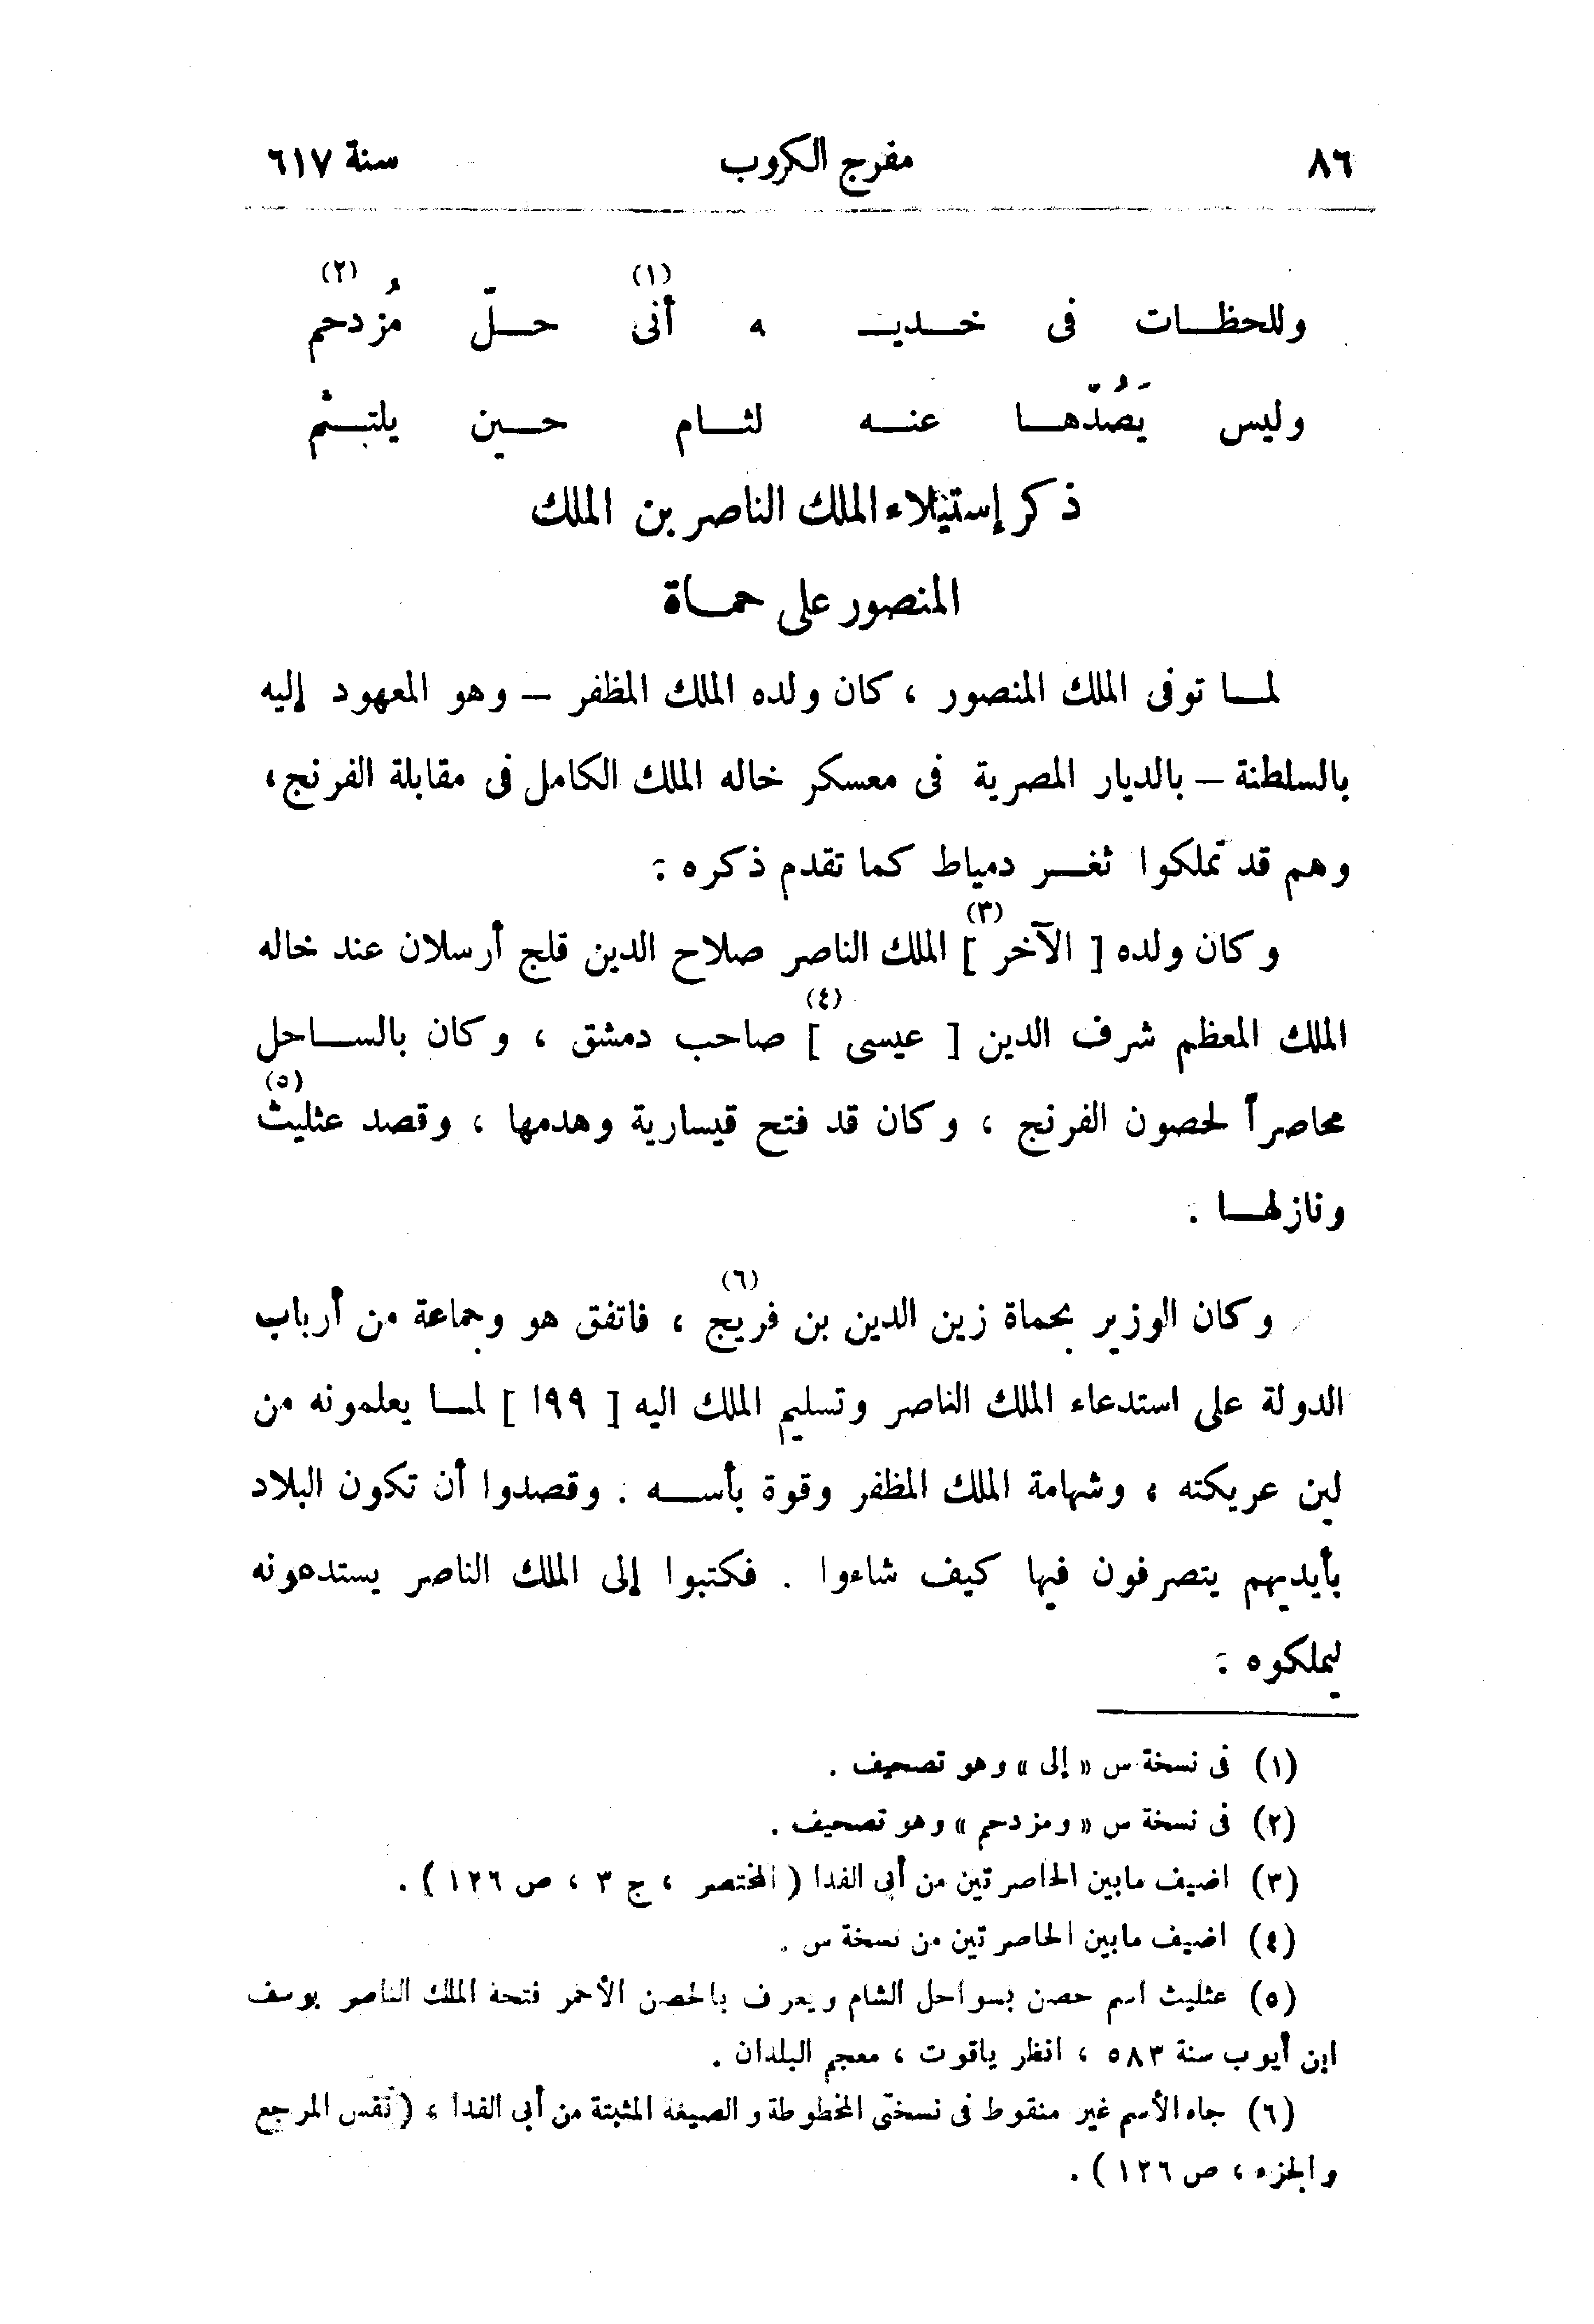 ٨٦ مفرج الكروب سنة ٦١٧
وللحظــات فى خــديــ ه أنى (١) حــلّ مُزدحم (٢)
وليس يَصُدّهــا عنــه لثــام حــين يلتــثم
ذكر إستيلاء الملك الناصر بن الملك
المنصور على حمــاة
لمــا توفى الملك المنصور ، كان ولده الملك المظفر – وهو المعهود إليه
بالسلطنة – بالديار المصرية فى معسكر خاله الملك الكامل فى مقابلة الفرنج ،
وهم قد تملكوا ثغــر دمياط كما تقدم ذكره :
وكان ولده [ الآخر ] (٣) الملك الناصر صلاح الدين قلج أرسلان عند خاله
الملك المعظم شرف الدين [ عيسى ] (٤) صاحب دمشق ، وكان بالســاحل
محاصراً لحصون الفرنج ، وكان قد فتح قيسارية وهدمها ، وقصد عثليث (٥)
ونازلهــا .
وكان الوزير بحماة زين الدين بن فريج (٦) ، فاتفق هو وجماعة من أرباب
الدولة على استدعاء الملك الناصر وتسليم الملك اليه [ ١٩٩ ] لمــا يعلمونه من
لين عريكته ، وشهامة الملك المظفر وقوة بأســه . وقصدوا أن تكون البلاد
بأيديهم يتصرفون فيها كيف شاءوا . فكتبوا إلى الملك الناصر يستدعونه
ليملكوه :
(١) فى نسخة س « إلى » وهو تصحيف .
(٢) فى نسخة س « ومزدحم » وهو تصحيف .
(٣) اضيف مابين الحاصرتين من أبى الفدا ( المختصر ، ج ٣ ، ص ١٢٦ ) .
(٤) اضيف مابين الحاصرتين من نسخة س .
(٥) عثليث اسم حصن بسواحل الشام ويعرف بالحصن الأحمر فتحة الملك الناصر يوسف
ابن أيوب سنة ٥٨٣ ، انظر ياقوت ، معجم البلدان .
(٦) جاء الأسم غير منقوط فى نسختى المخطوطة والصيغة المثبتة من أبى الفدا ، ( نفس المرجع
والجزء ، ص ١٢٦ ) .